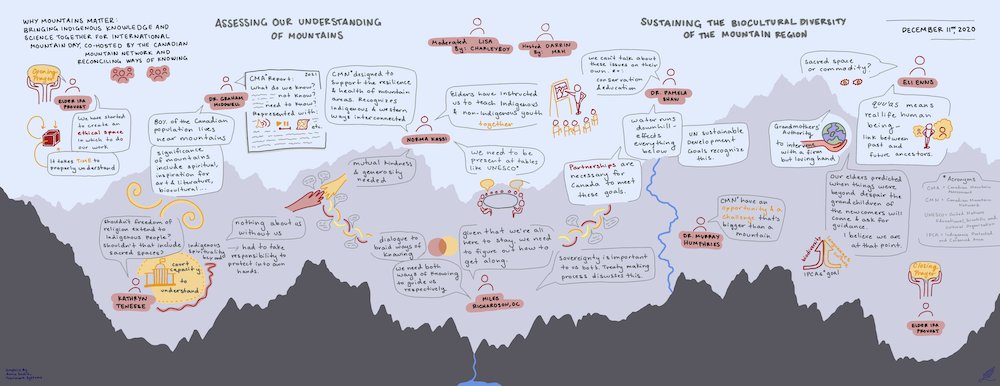 WHY MOUNTAINS MATTER:
BRINGING INDIGENOUS KNOWLEDGE AND
SCIENCE TOGETHER FOR INTERNATIONAL
MOUNTAIN DAY, CO-HOSTED BY THE CANADIAN
MOUNTAIN NETWORK AND
RECONCILING WAYS OF KNOWING
ASSESSING OUR UNDERSTANDING
OF MOUNTAINS
Moderated By:
LISA CHARLEYBOY
Hosted By:
DARRIN MAH
SUSTAINING THE BIOCULTURAL DIVERSITY
OF THE MOUNTAIN REGION
DECEMBER 11TH, 2020
Opening
Prayer
ELDER IRA
PROVOST
We have started
to create an
ethical space
in which to do
our work
It takes TIME to
properly understand
DR. GRAHAM
MCDOWELL
80% of the Canadian
population lives
near mountains
significance
of mountains
include spiritual,
inspiration for
art & literature,
biocultural...
CMA* Report:
2021
what do we know?
not know?
need to know?
Represented with:
etc.
CMN* designed to
support the resilience
& health of mountain
areas. Recognizes
indigenous & western
ways interconnected
NORMA KASSI
elders have instructed
us to teach Indigenous
& non-Indigenous youth
together
We need to be
present at tables
like UNESCO*
mutual kindness
& generosity
needed
Shouldn't freedom of
religion extend to
Indigenous People?
Shouldn't that include
sacred spaces?
Indigenous
spirituality
court
capacity
to
understand
KATHRYN
TENEESE
nothing about us
without us
had to take
responsibility to
protect into own
hands.
dialogue to
braid ways of
knowing
We need both
ways of knowing
to guide us
respectively
given that we're all
here to stay, we need
to figure out how to
get along.
sovereignty is important
to us both. Treaty making
process discusses this.
MILES
RICHARDSON, OC
we can't talk about
these issues on their
own. e.g.
conservation
& education
DR. PAMELA
SHAW
water runs
downhill -
effects
everything
below
UN Sustainable
Development
Goals recognize
this.
Partnerships are
necessary for
Canada to meet
these goals.
CMN* have an
opportunity & a
challenge that's
bigger than a
mountain.
DR. MURRAY
HUMPHRIES
Sacred space
or commodity?
ELI ENNS
quu?as means
real life human
being -
link between
past and
future ancestors.
Grandmothers'
Authority
to intervene
with a firm
but loving hand
Our elders predicted
when things were
beyond despair the
grandchildren of
the newcomers will
come & ask for
guidance.
I believe we are
at that point.
IPCAs* goal
Closing
Prayer
ELDER IRA
PROVOST
* Acronyms
CMA: Canadian Mountain
Assessment
CMN: Canadian Mountain
Network
UNESCO: United Nations
Educational, Scientific and
Cultural Organization
IPCA: Indigenous Protected
and Conserved Areas
Graphics By